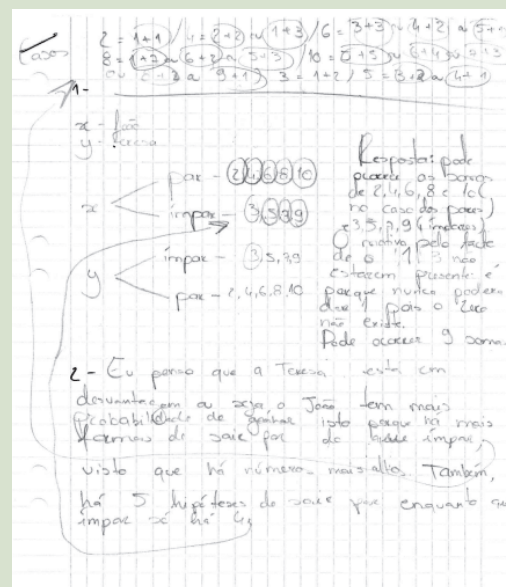 Casos 2 = 1+1 / 4 = 2+2 ou 1+3 / 6 = 3+3 ou 4+2 ou 5+1
8 = ou 6+2 ou 5+3 / 10 = 5+5 ou 6+4 ou
ou ou 9+1 3 = 1+2 / 5 = 3+2 ou 4+1
1-
x - João
y - Teresa
x par - 2 4 6 8 10
ímpar - 3 5 7 9
y ímpar - 3,5,7,9
par - 2,4,6,8,10
Resposta: pode
ocorrer as somas
de 2,4,6,8 e 10 (
no caso dos pares)
e 3,5,7,9 (ímpares)
O motivo pelo facto
de o 1 não
estarem presente é
porque nunca poderá
dar 1 pois o zero
não existe.
Pode ocorrer 9 somas
2 - Eu penso que a Teresa está em
desvantagem ou seja o João tem mais
probabilidade de ganhar isto porque há mais
formas de sair par do ímpar,
visto que há números mais alto. Também,
há 5 hipóteses de sair par enquanto que
ímpar só há 4.